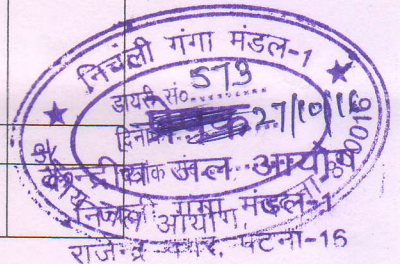 निचली गंगा मंडल-1
डायरी सं० 573
दिनांक 27/10/16
केन्द्रीय जल आयोग
निचली गंगा मंडल-1
राजेन्द्र नगर, पटना-16